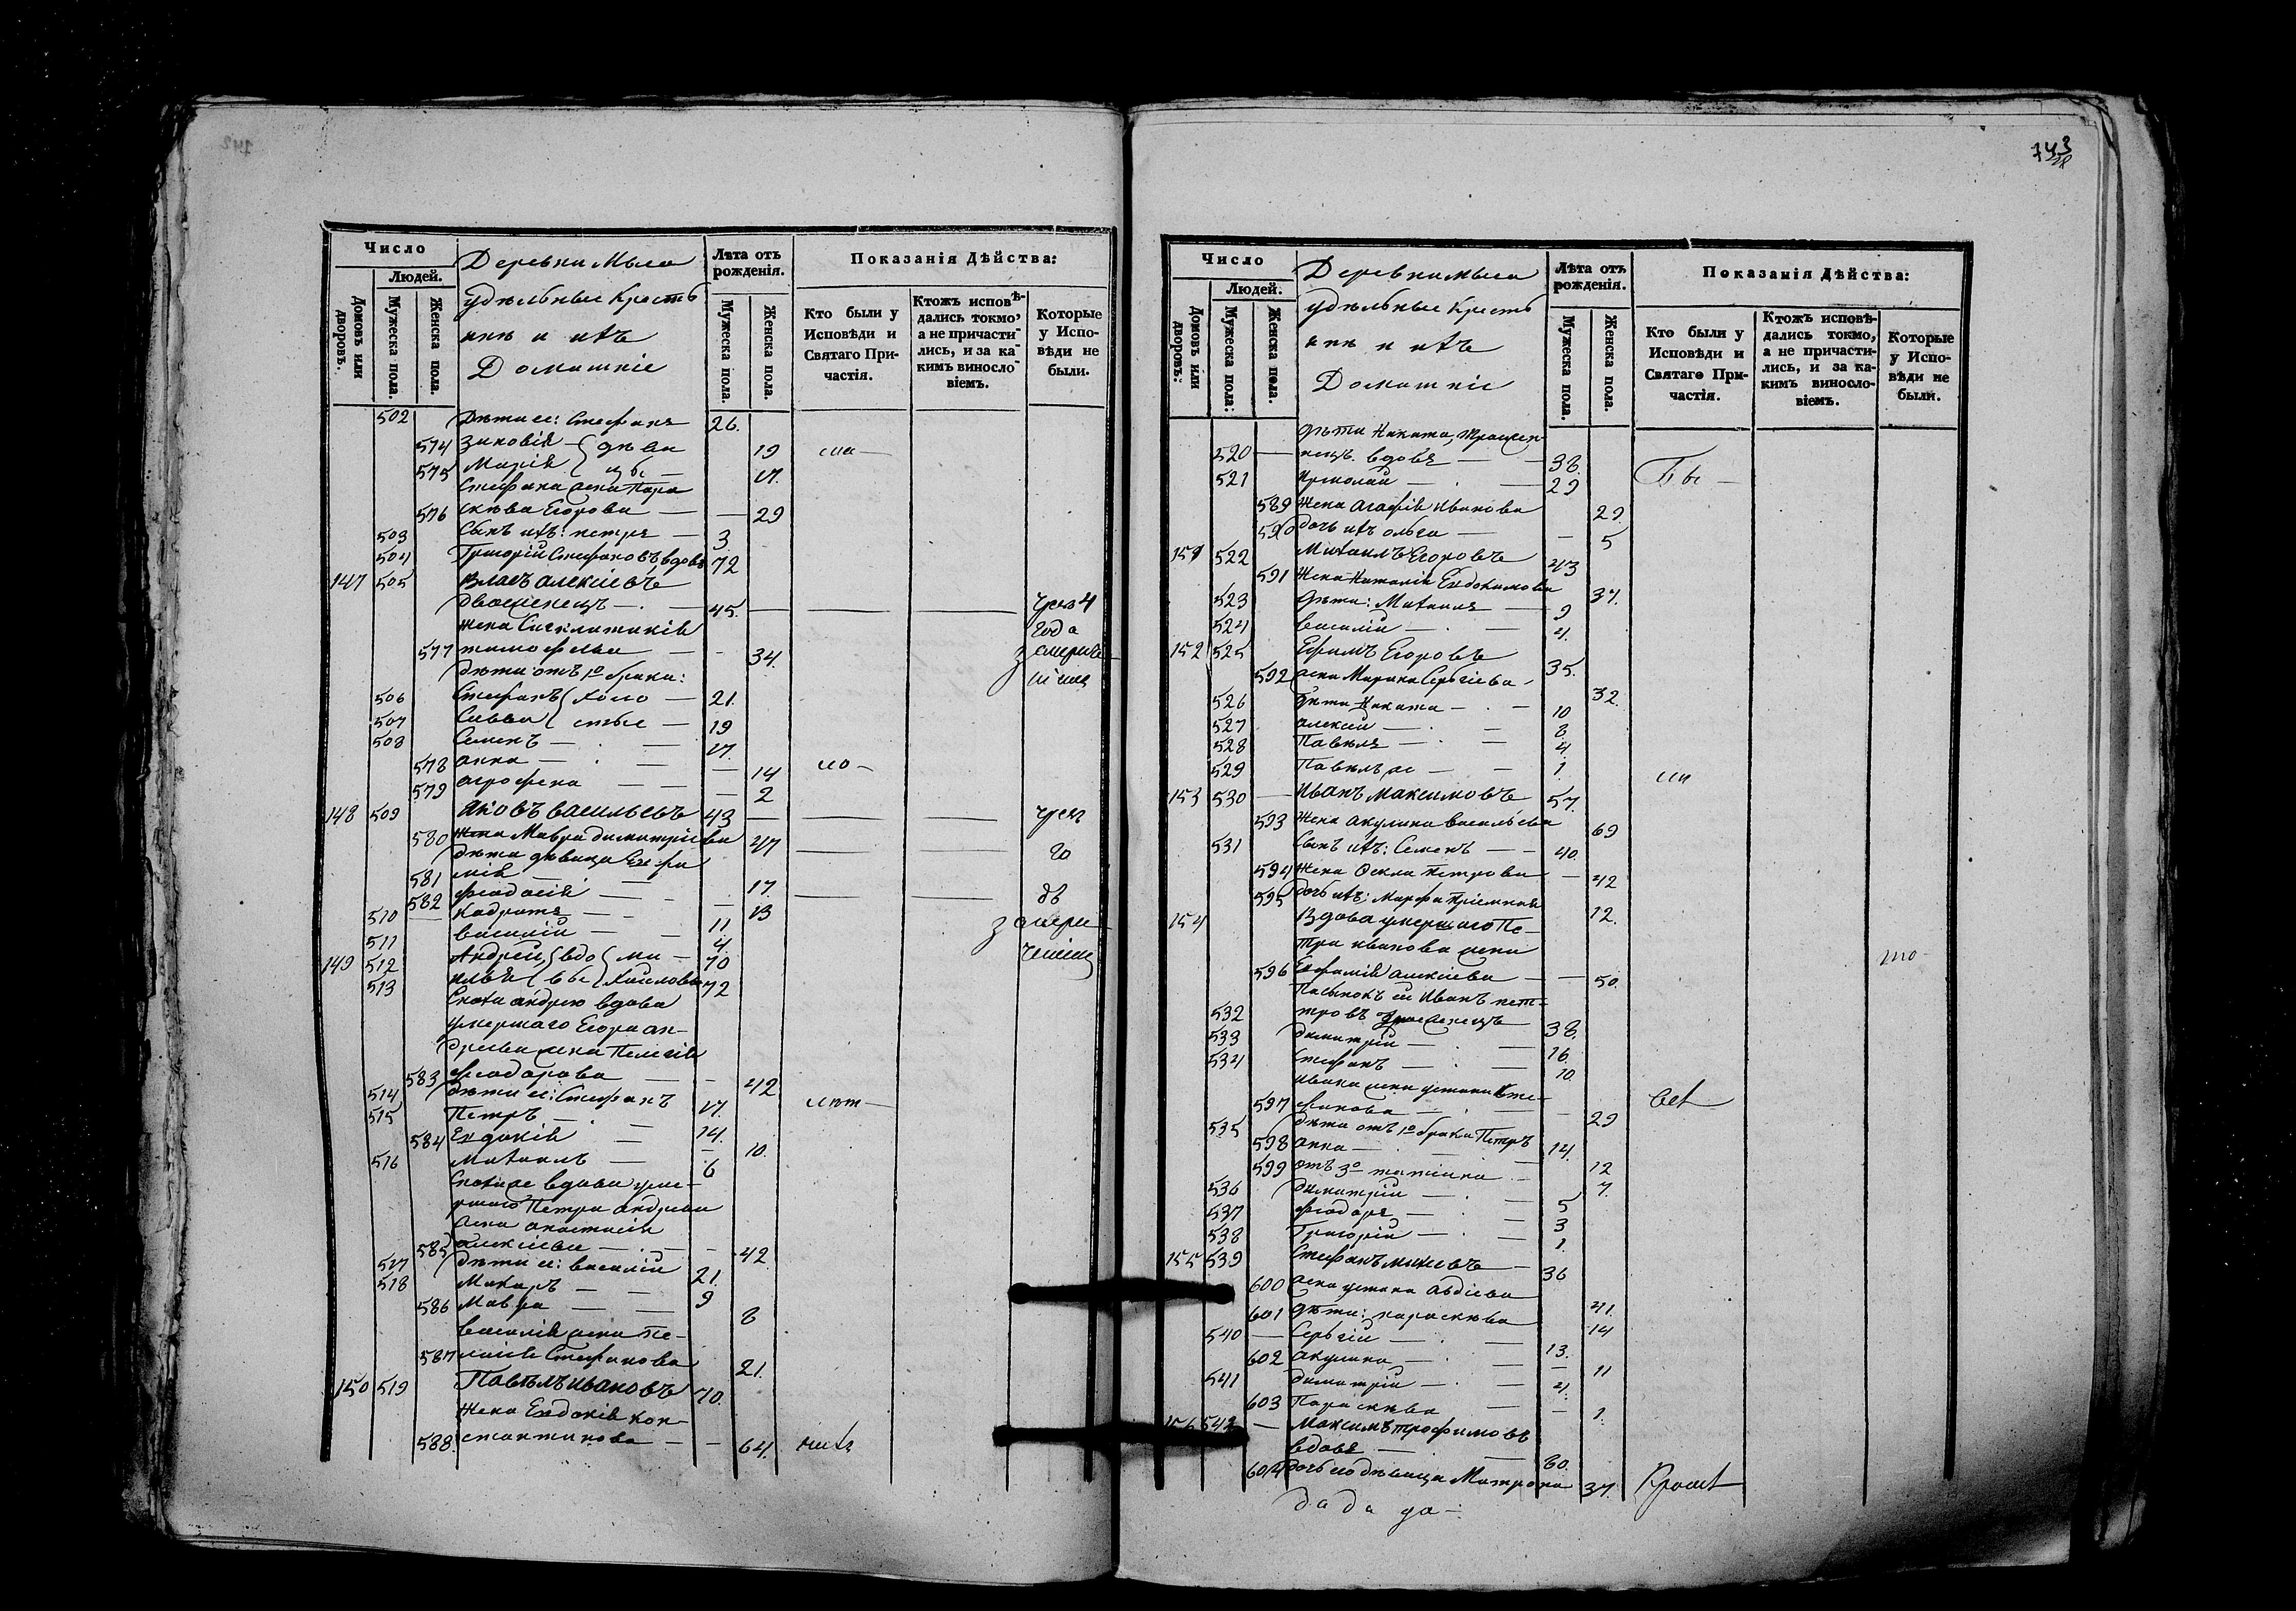 743
Число
Людей.
Домовъ или дворовъ.
Мужеска пола.
Женска пола.
Деревни Мыса
удѣльные Кресть
яне и ихъ
Домашніе
Лѣта отъ рожденія.
Мужеска пола.
Женска пола.
Показанія Дѣйства:
Кто были у Исповѣди и Святаго Причастія.
Ктожъ исповѣдались токмо, а не причастились, и за какимъ винословіемъ.
Которые у Исповѣди не были.
502 Дѣти ея: Стефанъ 26.
574 Зиновія 19
575 Марія дѣвицы 17.
Стефана жена Пара
576 скѣва Егорова 29
503 Сынъ ихъ: петръ 3
504 Григорій Стефановъ вдовъ 72
147 505 Власъ алексіевъ
двоеженецъ 45. чрез 4
жена Синклитикія года
577 тимофеева 34.
дѣти отъ 1го брака:
506 Стефанъ холо 21.
507 Савва стые 19
508 Семенъ 17.
578 анна 14
579 агрофена 2
148 509 Яковъ васильевъ 43 чрез
580 Жена Мавра димитріева 47 го
дѣти дѣвица Евфи
581 мія 17.
582 феодосія 13
510 Кодратъ 11
511 василій 4.
149 512 Андрей вдо ми 70
513 илья вые хайловы 72
Сноха андрею вдова
умершаго Егора ан-
дреева жена Пелагія
583 феодорова 42
514 дѣти ея: Стефанъ 17.
515 Петръ 14.
584 Евдокія 10.
516 михаилъ 6
Сноха же вдова уме-
ршаго Петра андреева
жена анастасія
585 алексіева 42
517 дѣти ея: василій 21.
518 Макаръ 9
586 Мавра 8
василія жена Пе-
587 лагія Стефанова 21.
150 519 Павелъ ивановъ 70.
Жена Евдокія кон-
588. стантинова 64.
Число
Людей.
Домовъ или дворовъ:
Мужеска пола:
Женска пола.
Деревни мыса
удѣльные Кресть
яне и ихъ
Домашніе
Лѣта отъ рожденія.
Мужеска пола.
Женска пола.
Показанія Дѣйства:
Кто были у Исповѣди и Святаго Причастія.
Ктожъ исповѣдались токмо, а не причастились, и за какимъ винословіемъ.
Которые у Исповѣди не были.
дѣти Никита, троежен
520 нецъ. вдовъ 38.
521 ермолай 29
589 Жена агафія иванова 29.
590 дочь ихъ ольга 5
151 522 Михаилъ Егоровъ 43
591 Жена Наталія Евдокимова 37.
523 дѣти: Михаилъ 9
524 василій 4.
152 525 Ефимъ Егоровъ 35.
592 жена Марина Сергіева 32.
526 дѣти Никита 10
527 алексій 8
528 Павелъ 4
529 Павелъ же 1.
153 530 иванъ максимовъ 57.
593 жена акулина васильева 69
531 Сынъ ихъ: Семенъ 40.
594 жена Фекла петрова 42
595 дочь ихъ: марфа пріемная 12.
154 вдова умершаго Пе-
тра иванова жена
596 Евфимія алексіева 50.
Пасынокъ ея Иванъ пет-
532 тровъ троеженецъ 38.
533 димитрій 16.
534 Стефанъ 10.
ивана жена устина Сте-
597 фанова 29
535 дѣти отъ 1го брака Петръ 14.
598 анна 12
599 отъ 3го татіана 7.
536 димитрій 5
537 феодоръ 3
538 Григорій 1.
155 539 Стефанъ михеевъ 36
600 жена устина авдіева 41.
601 дѣти: параскѣва 14
540 Сергій 13.
602 акулина 11
541 димитрій 4.
603 Параскѣва 1.
156 542 Максимъ трофимовъ
вдовъ 60.
604 дочь его дѣвица Матрона 37.